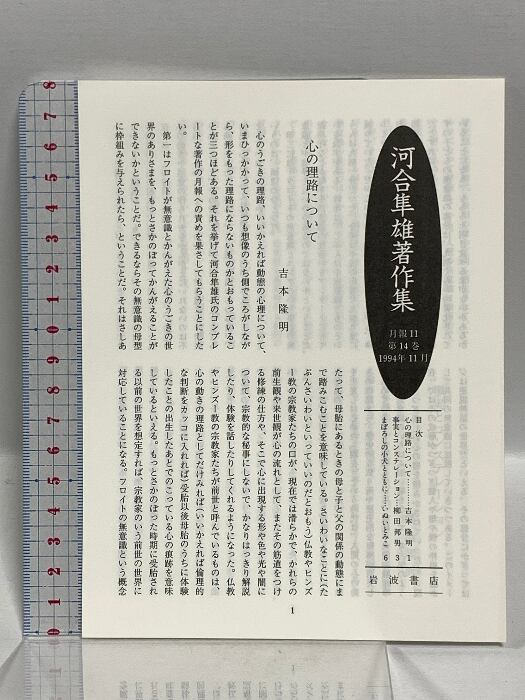 河合隼雄著作集
月報11
第14巻
1994年11月
目次
心の理路について………吉本隆明 1
事実とコンステレーション…柳田邦男 3
まぼろしの小犬とともに…いぬいとみこ 6
岩波書店
心の理路について
吉本隆明
心のうごきの理路、いいかえれば動態の心理について、
いまひっかかって、いつも想像のうち側でころがしなが
ら、形をもった理路にならないものかとおもっているこ
とが三つほどある。それを挙げて河合隼雄氏のコンプレ
ートな著作の月報への責めを果さしてもらうことにした
い。
第一はフロイトが無意識とかんがえた心のうごきの世
界のありさまを、もっとさかのぼってかんがえることが
できないかということだ。できるならその無意識の母型
に枠組みを与えられたら、ということだ。それはさしあ
たって、母胎にあるときの母と子と父の関係の動態にま
で踏みこむことを意味している。さいわいなことに(た
ぶんさいわいといっていいのだとおもう)仏教やヒンズ
ー教の宗教家たちの口が、現在では滑らかで、かれらの
前生観や来世観が心の流れとして、またその筋道をつけ
る修練の仕方や、そこで心に出現する形や色や光や闇に
ついて、宗教的な秘事にしないで、かなりはっきり解説
したり、体験を話したりしてくれるようになった。仏教
やヒンズー教の宗教家たちが前世と呼んでいるものは、
心の動きの理路としてだけみれば(いいかえれば倫理的
な判断をカッコに入れれば)受胎以後母胎のうちに体験
したことの出生したあとでのこっている心の痕跡を意味
しているといえる。もっとさかのぼった時期に受胎され
る以前の世界を想定すれば、宗教家のいう前世の世界に
対応していることになる。フロイトの無意識という概念
1
8
7
6
5
4
3
2
1
0
9
8
7
6
5
4
3
2
1
0